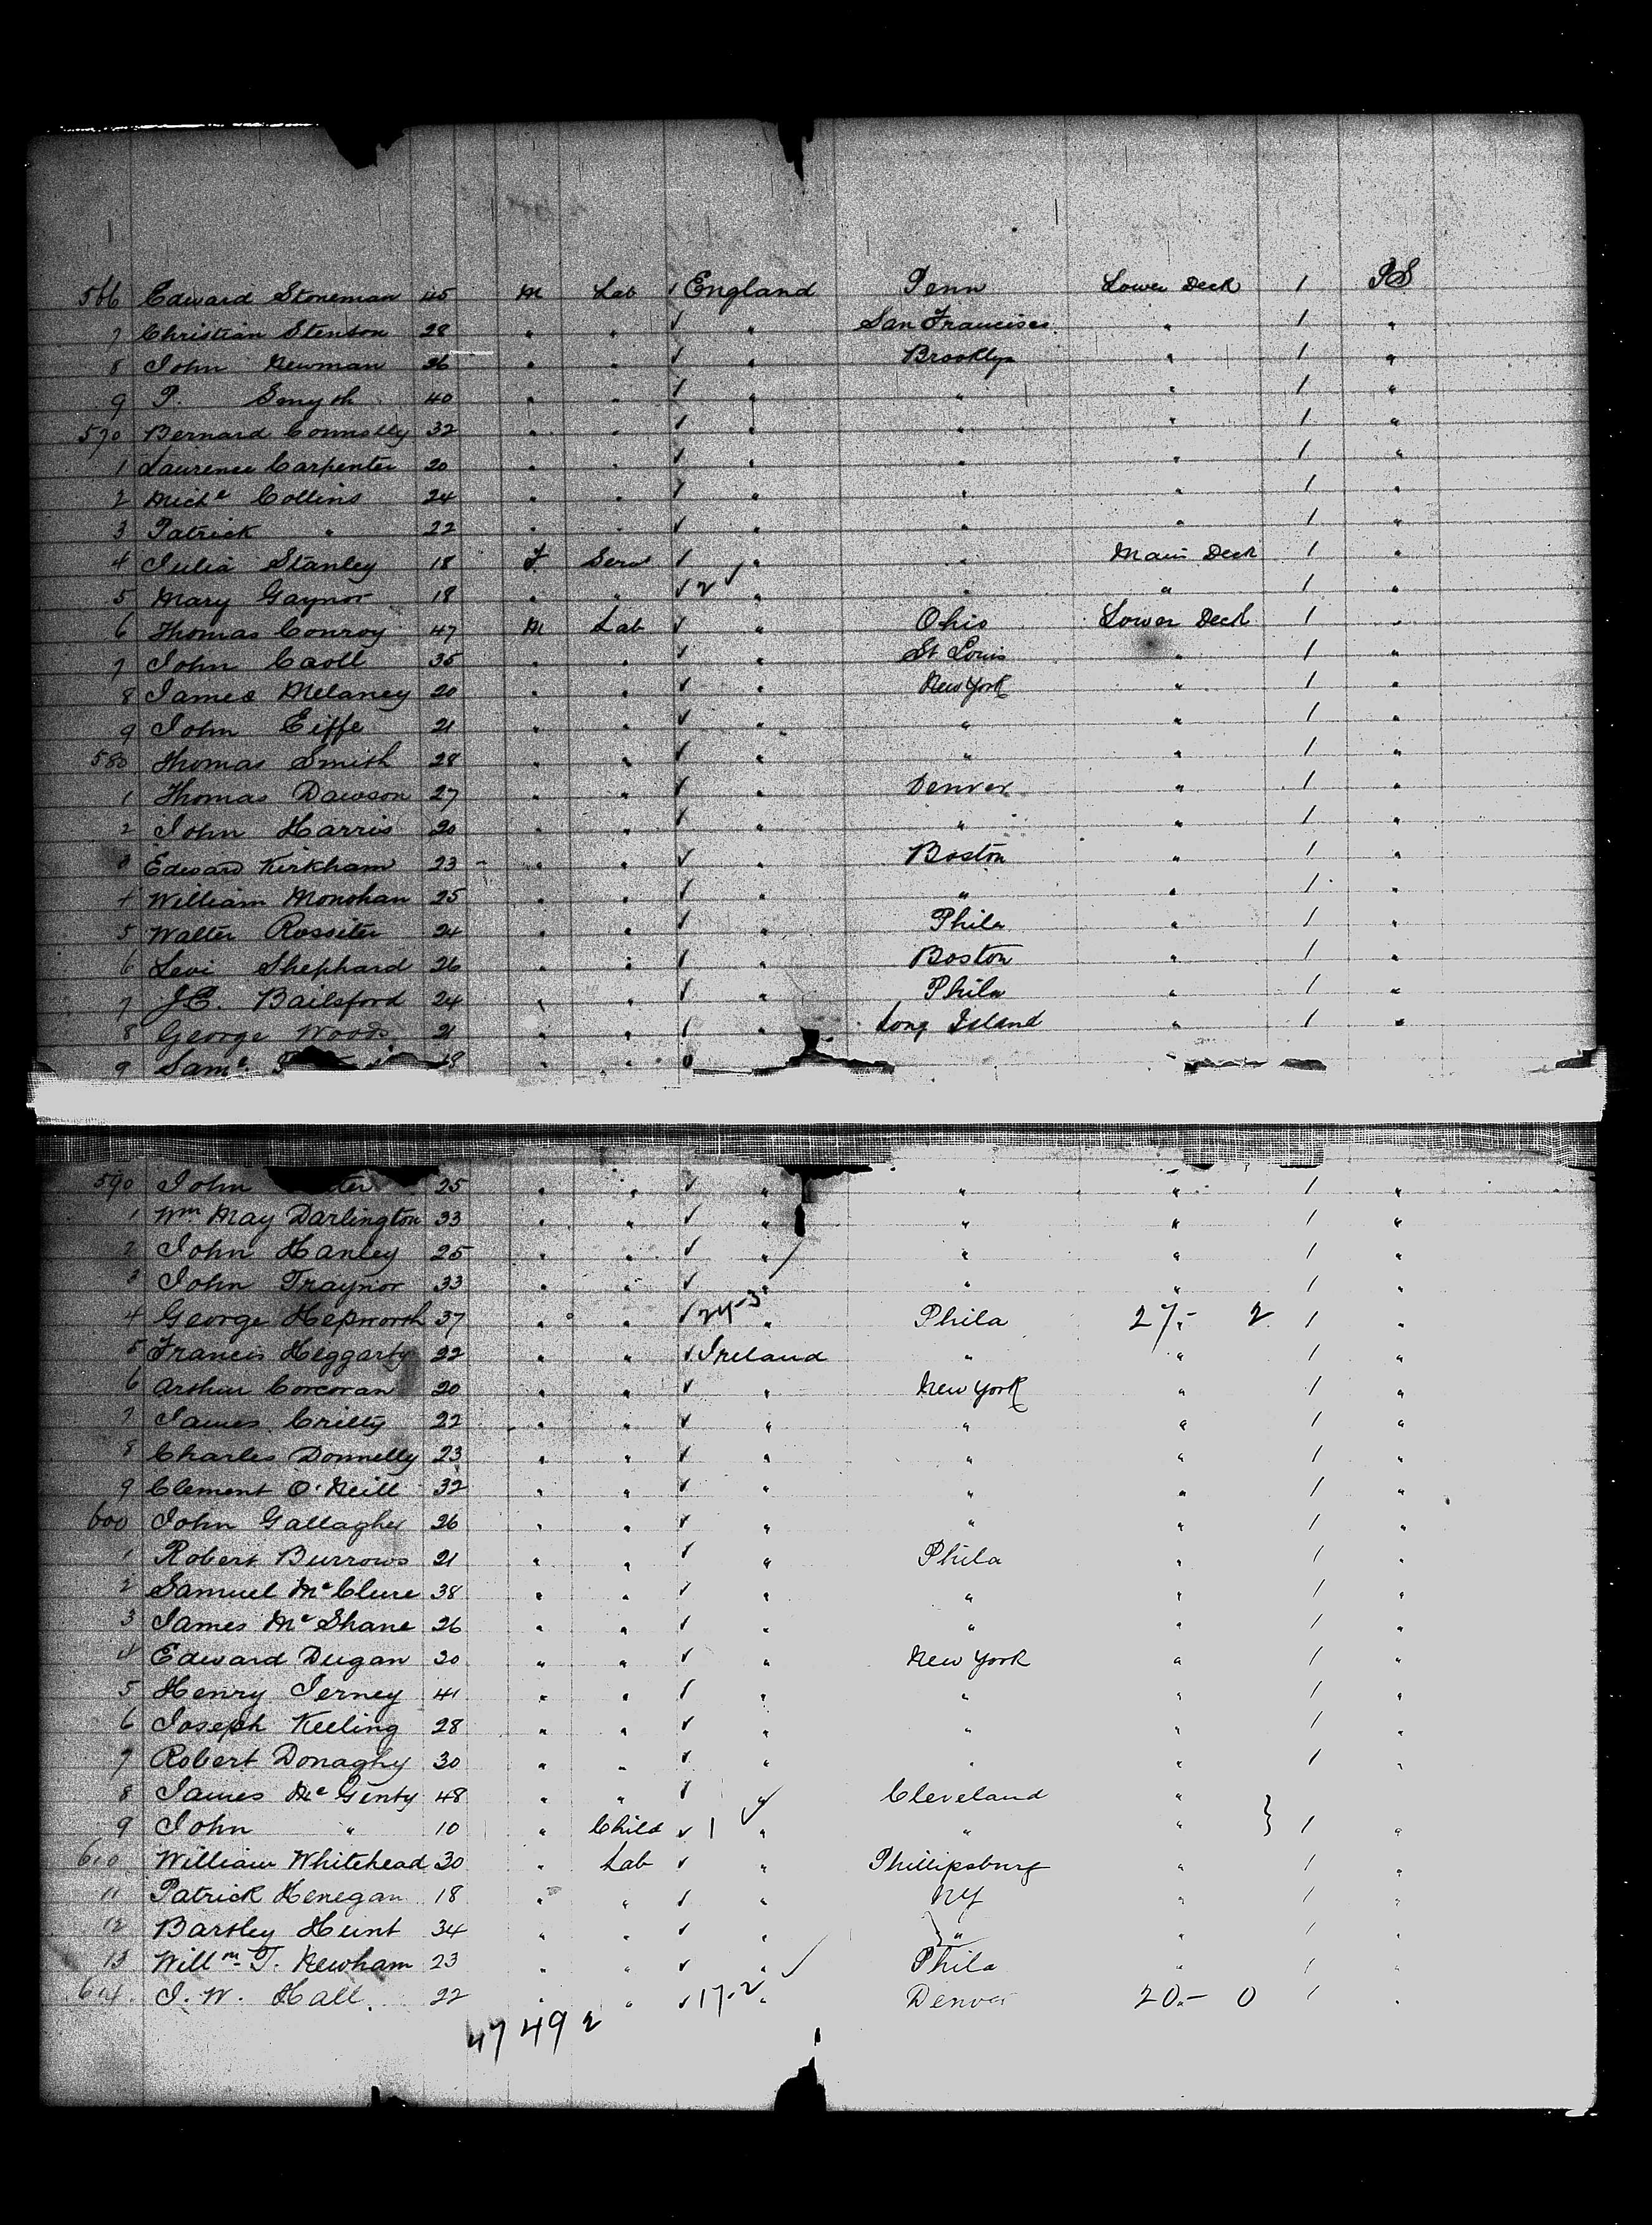 566 Edward Stoneman 45 M Lab / England Penn Lower Deck 1 PS
7 Christian Stenson 28 " " ✓ " San Francisco " 1 "
8 John Newman 26 " " ✓ " Brooklyn " 1 "
9 P. Smyth 40 " " / " " " 1 "
570 Bernard Connolly 32 " " / " " " 1 "
1 Laurence Carpenter 20 " " ✓ " " " 1 "
2 Miche Collins 24 " " / " " " 1 "
3 Patrick " 22 " " ✓ " " " 1 "
4 Julia Stanley 18 F Serv / " " Main Deck 1 "
5 Mary Gaynor 18 " " ✓ 2 ✓ " " " 1 "
6 Thomas Conroy 47 M Lab ✓ " Ohio Lower Deck 1 "
7 John Caroll 35 " " ✓ " St Louis " 1 "
8 James Melaney 20 " " ✓ " New York " 1 "
9 John Eiffe 21 " " ✓ " " " 1 "
580 Thomas Smith 28 " " / " " " 1 "
1 Thomas Dawson 27 " " / " Denver " 1 "
2 John Harris 20 " " / " " " 1 "
3 Edward Kirkham 23 - " " ✓ " Boston " 1 "
4 William Monohan 25 " " ✓ " " " 1 "
5 Walter Rossiter 24 " " / " Phila " 1 "
6 Levi Shephard 26 " " / " Boston " 1 "
7 J.E. Bailsford 24 " " / " Phila " 1 "
8 George Woods 21 " " / " Long Island " 1 "
9 Saml 18 " "
590 John 25 " " ✓ " " " 1 "
1 Wm May Darlington 33 " " ✓ " " " 1 "
2 John Hanley 25 " " ✓ " " " 1 "
3 John Traynor 33 " " ✓ " " " 1 "
4 George Hepworth 37 " " ✓ 24-3 " Phila 27.- 2 1 "
5 Francis Heggarty 22 " " ✓ Ireland " " 1 "
6 Arthur Corcoran 20 " " ✓ " New York " 1 "
7 James Crilly 22 " " ✓ " " " 1 "
8 Charles Donnelly 23 " " ✓ " " " 1 "
9 Clement O'Neill 32 " " ✓ " " " 1 "
600 John Gallagher 26 " " ✓ " " " 1 "
1 Robert Burrows 21 " " / " Phila " 1 "
2 Samuel McClure 38 " " / " " " 1 "
3 James McShane 26 " " / " " " 1 "
4 Edward Dugan 30 " " ✓ " New York " 1 "
5 Henry Ierney 41 " " / " " " 1 "
6 Joseph Keeling 28 " " ✓ " " " 1 "
7 Robert Donaghy 30 " " ✓ " " " 1 "
8 James McGinty 48 " " / " ✓ Cleveland " }
9 John " 10 " Child ✓ 1 " " " 1 "
610 William Whitehead 30 " Lab ✓ " Phillipsburg " 1 "
11 Patrick Henegan 18 " " / " NY " 1 "
12 Bartley Hunt 34 " " ✓ " " " 1 "
13 Willm T. Newham 23 " " ✓ " ✓ Phila " 1 "
614 J. W. Hall 22 " " ✓ 17-2 " Denver 20.- 0 1 "
47 49 2